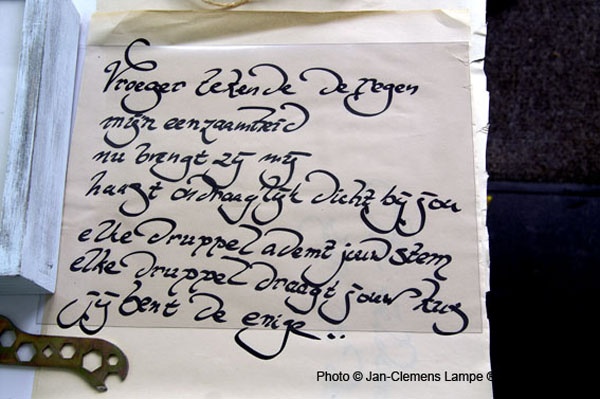 Vroeger tekende de regen
mijn eenzaamheid
nu brengt zij mij
haast ondraaglijk dicht bij jou
elke druppel ademt jouw stem
elke druppel draagt jouw kus
jij bent de enige ..
Photo © Jan-Clemens Lampe ©